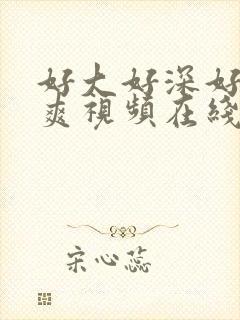 好大好深好
爽視頻在綫
宋心蕊